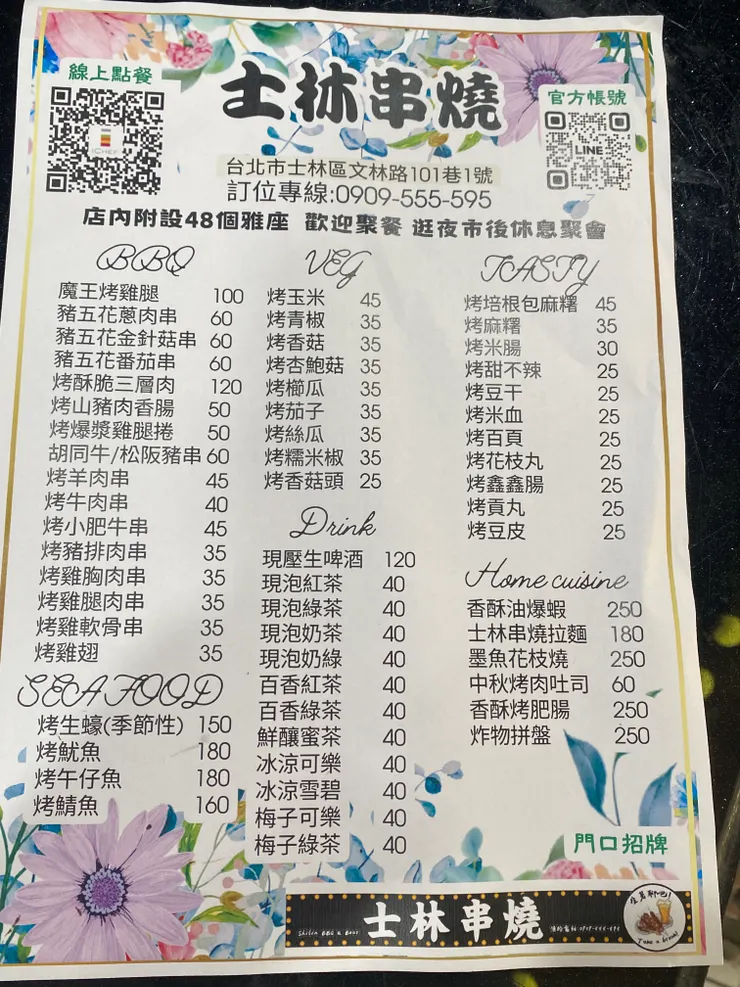 線上點餐
士林串燒
官方帳號
iCHEF
LINE
台北市士林區文林路101巷1號
訂位專線:0909-555-595
店內附設48個雅座 歡迎聚餐 逛夜市後休息聚會
BBQ
魔王烤雞腿 100
豬五花蔥肉串 60
豬五花金針菇串 60
豬五花番茄串 60
烤酥脆三層肉 120
烤山豬肉香腸 50
烤爆漿雞腿捲 50
胡同牛/松阪豬串 60
烤羊肉串 45
烤牛肉串 40
烤小肥牛串 45
烤豬排肉串 35
烤雞胸肉串 35
烤雞腿肉串 35
烤雞軟骨串 35
烤雞翅 35
SEAFOOD
烤生蠔(季節性) 150
烤魷魚 180
烤午仔魚 180
烤鯖魚 160
VEG
烤玉米 45
烤青椒 35
烤香菇 35
烤杏鮑菇 35
烤櫛瓜 35
烤茄子 35
烤絲瓜 35
烤糯米椒 35
烤香菇頭 25
Drink
現壓生啤酒 120
現泡紅茶 40
現泡綠茶 40
現泡奶茶 40
現泡奶綠 40
百香紅茶 40
百香綠茶 40
鮮釀蜜茶 40
冰涼可樂 40
冰涼雪碧 40
梅子可樂 40
梅子綠茶 40
TASTY
烤培根包麻糬 45
烤麻糬 35
烤米腸 30
烤甜不辣 25
烤豆干 25
烤米血 25
烤百頁 25
烤花枝丸 25
烤鑫鑫腸 25
烤貢丸 25
烤豆皮 25
Home cuisine
香酥油爆蝦 250
士林串燒拉麵 180
墨魚花枝燒 250
中秋烤肉吐司 60
香酥烤肥腸 250
炸物拼盤 250
門口招牌
Shilin BBQ & Beer
士林串燒
Take a break!